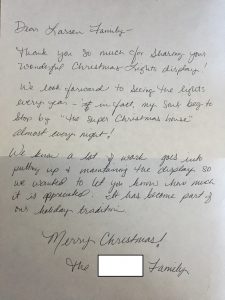 Dear Larsen Family-
Thank you so much for sharing your
wonderful Christmas lights display!
We look forward to seeing the lights
every year - in fact, my sons beg to
stop by "the super Christmas house"
almost every night!
We know a lot of work goes into
putting up & maintaining the display so
we wanted to let you know how much
it is appreciated. It has become part of
our holiday tradition.
Merry Christmas!
The Family